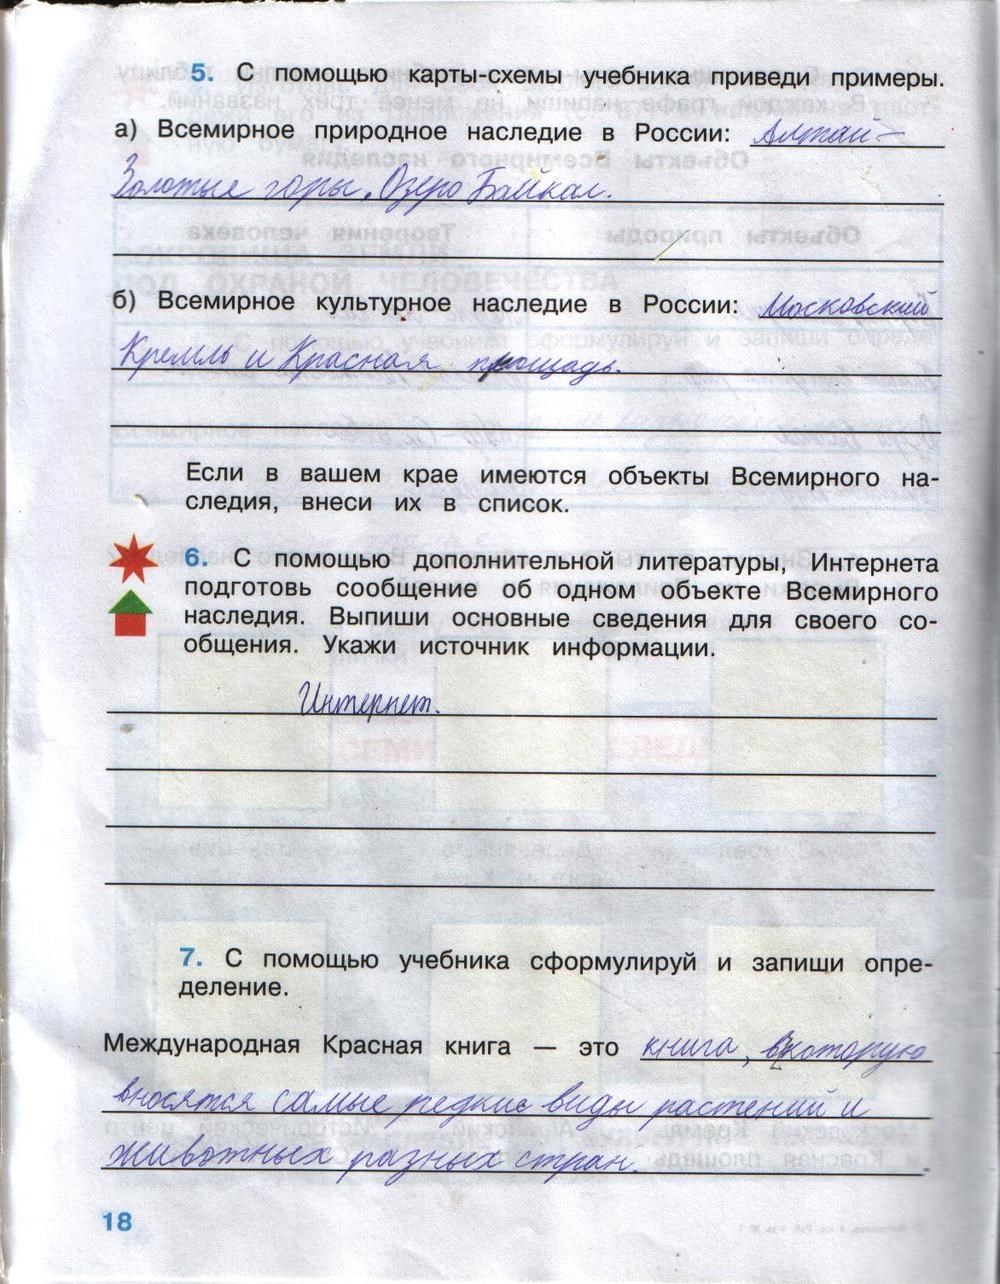 5. С помощью карты-схемы учебника приведи примеры.
а) Всемирное природное наследие в России: Алтай-
Золотые горы, Озеро Байкал.
б) Всемирное культурное наследие в России: Московский
Кремль и Красная площадь.
Если в вашем крае имеются объекты Всемирного на-
следия, внеси их в список.
6. С помощью дополнительной литературы, Интернета
подготовь сообщение об одном объекте Всемирного
наследия. Выпиши основные сведения для своего со-
общения. Укажи источник информации.
Интернет.
7. С помощью учебника сформулируй и запиши опре-
деление.
Международная Красная книга — это книга, в которую
вносятся самые редкие виды растений и
животных разных стран.
18